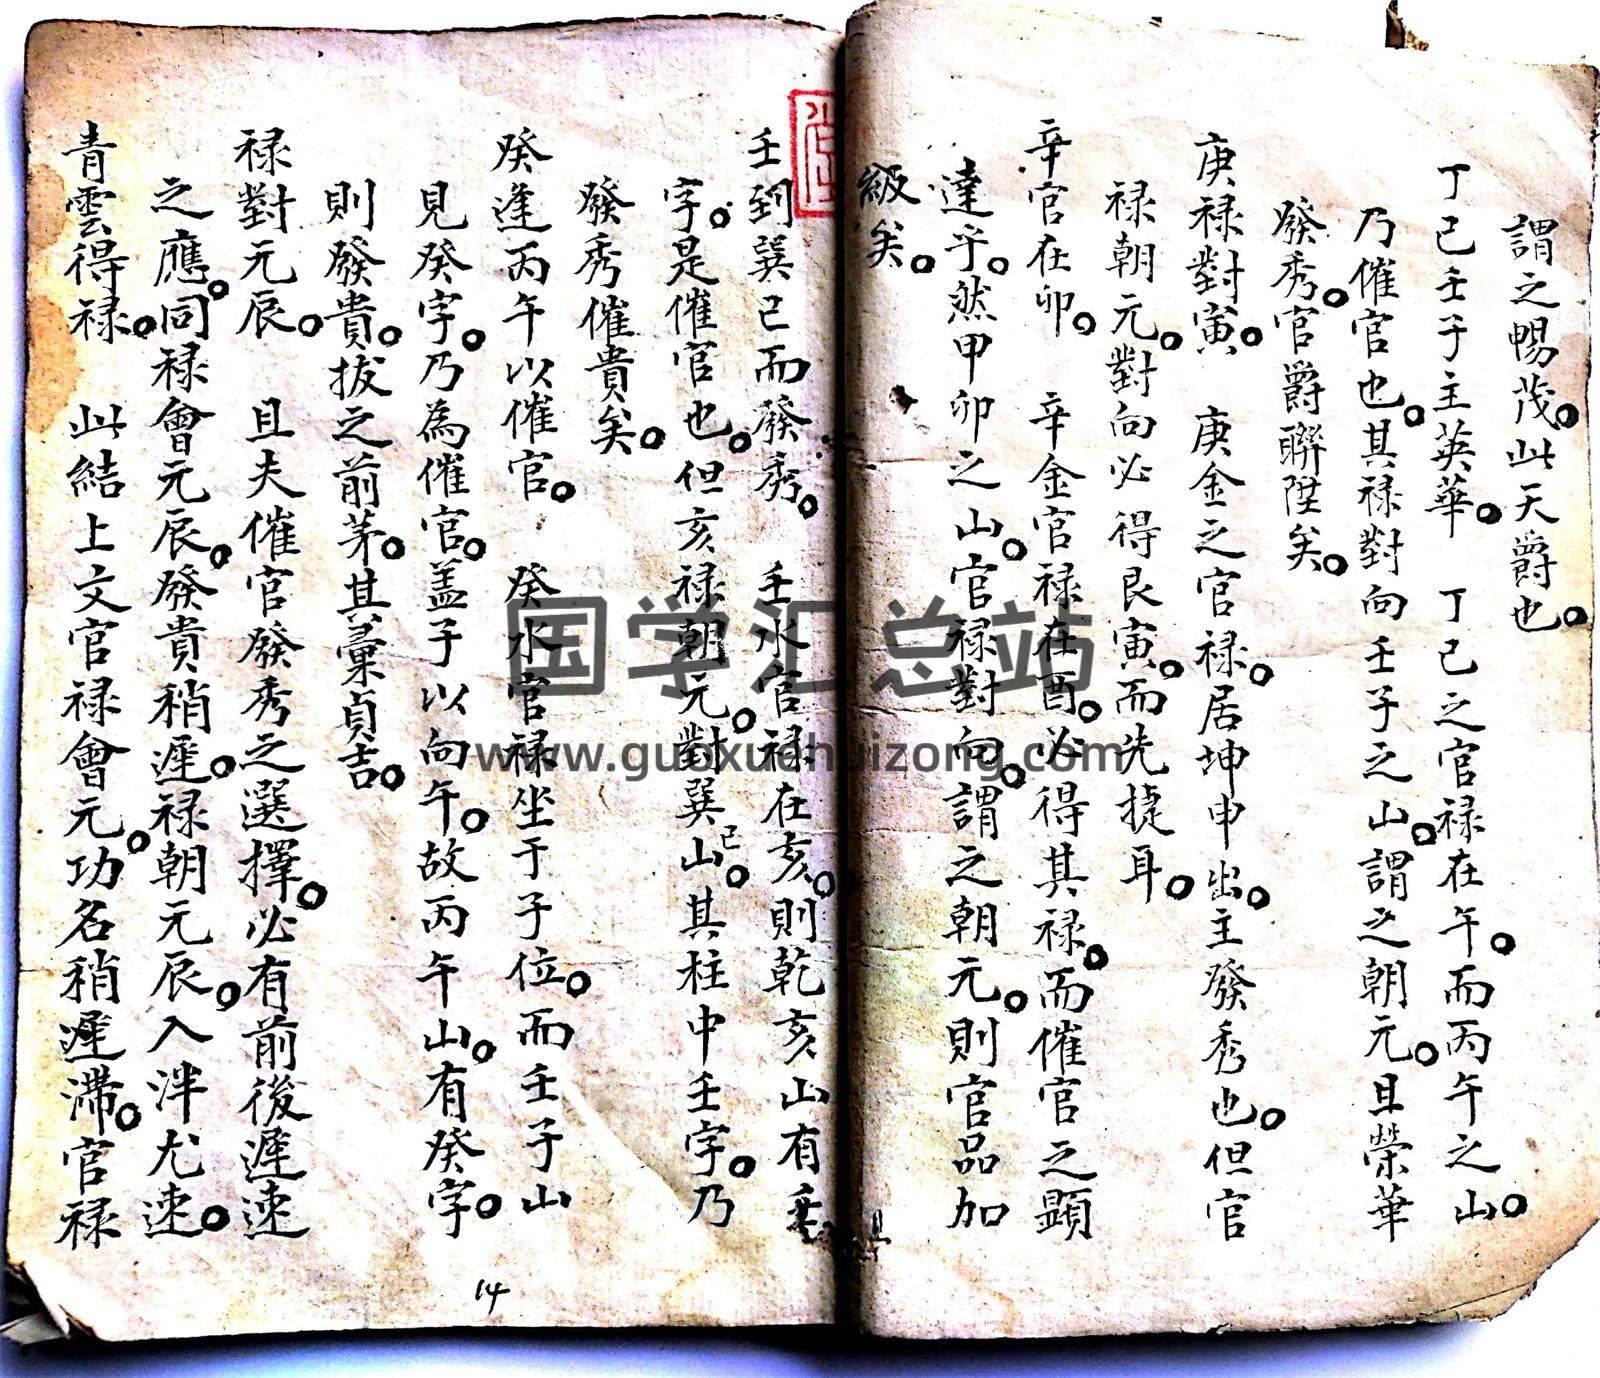 謂之暢茂。此天爵也。
丁己壬子主英華。 丁己之官禄在午。而丙午之山。
乃催官也。其禄對向壬子之山。謂之朝元。且榮華
發秀。官爵聯陞矣。
庚禄對寅。 庚金之官禄。居坤申出。主發秀也。但官
禄朝元。對向必得艮寅。而先捷耳。
辛官在卯。 辛金官禄在酉。必得其禄。而催官之顯
達乎。然甲卯之山。官禄對向。謂之朝元。則官品加
級矣。
壬到巽己而發秀。 壬水官禄在亥。則乾亥山有壬
字。是催官也。但亥禄朝元。對巽己山。其柱中壬字。乃
發秀催貴矣。
癸逢丙午以催官。 癸水官禄坐于子位。而壬子山
見癸字。乃為催官。盖子以向午。故丙午山。有癸字。
則發貴。拔之前茅。其藁貞吉。
禄對元辰。 且夫催官發秀之選擇。必有前後遲速
之應。同禄會元辰。發貴稍遲。禄朝元辰。入泮尤速。
青雲得禄。 此結上文官禄會元。功名稍遲滯。官禄
14
国学汇总站
www.guoxuehuizong.com